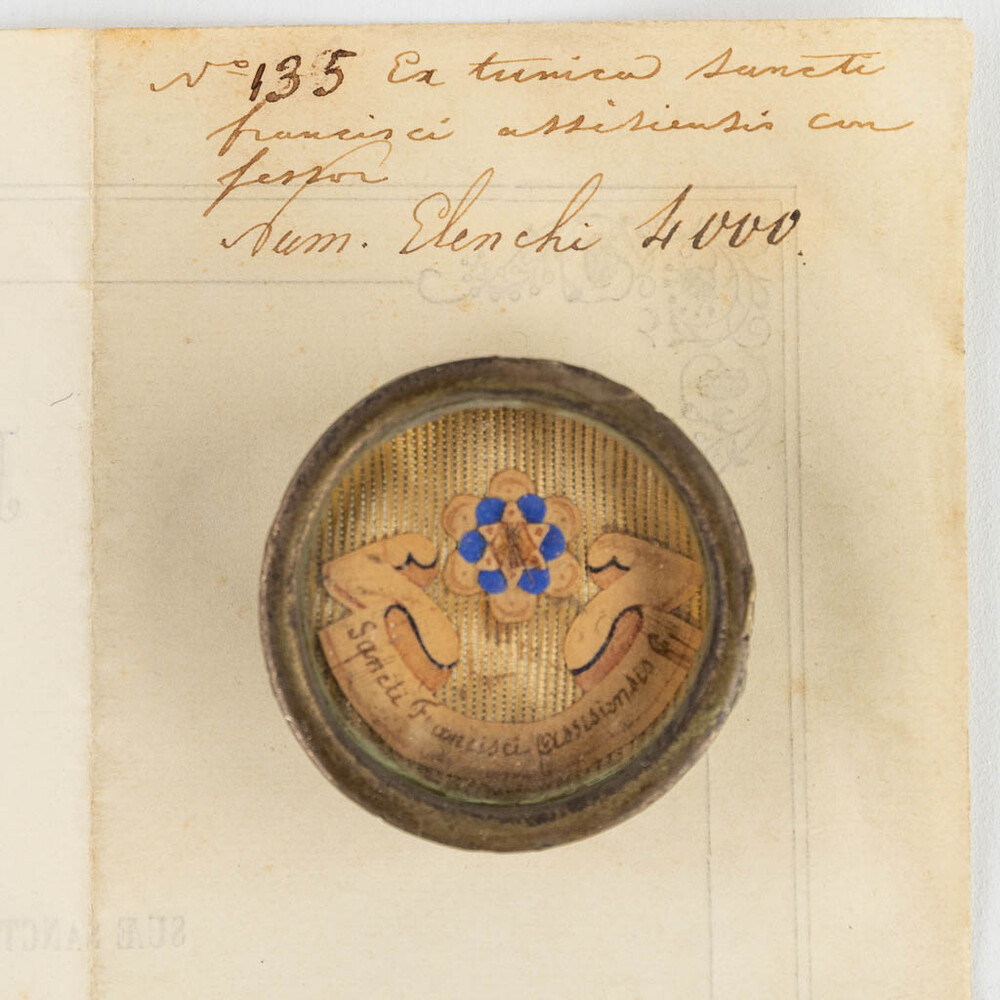 Nº 135 Ex tunica Sancti
francisci assisiensis con
fessor
Num. Elenchi 4000.
Sancti Francisci Assisiensis
SUÆ SANCT